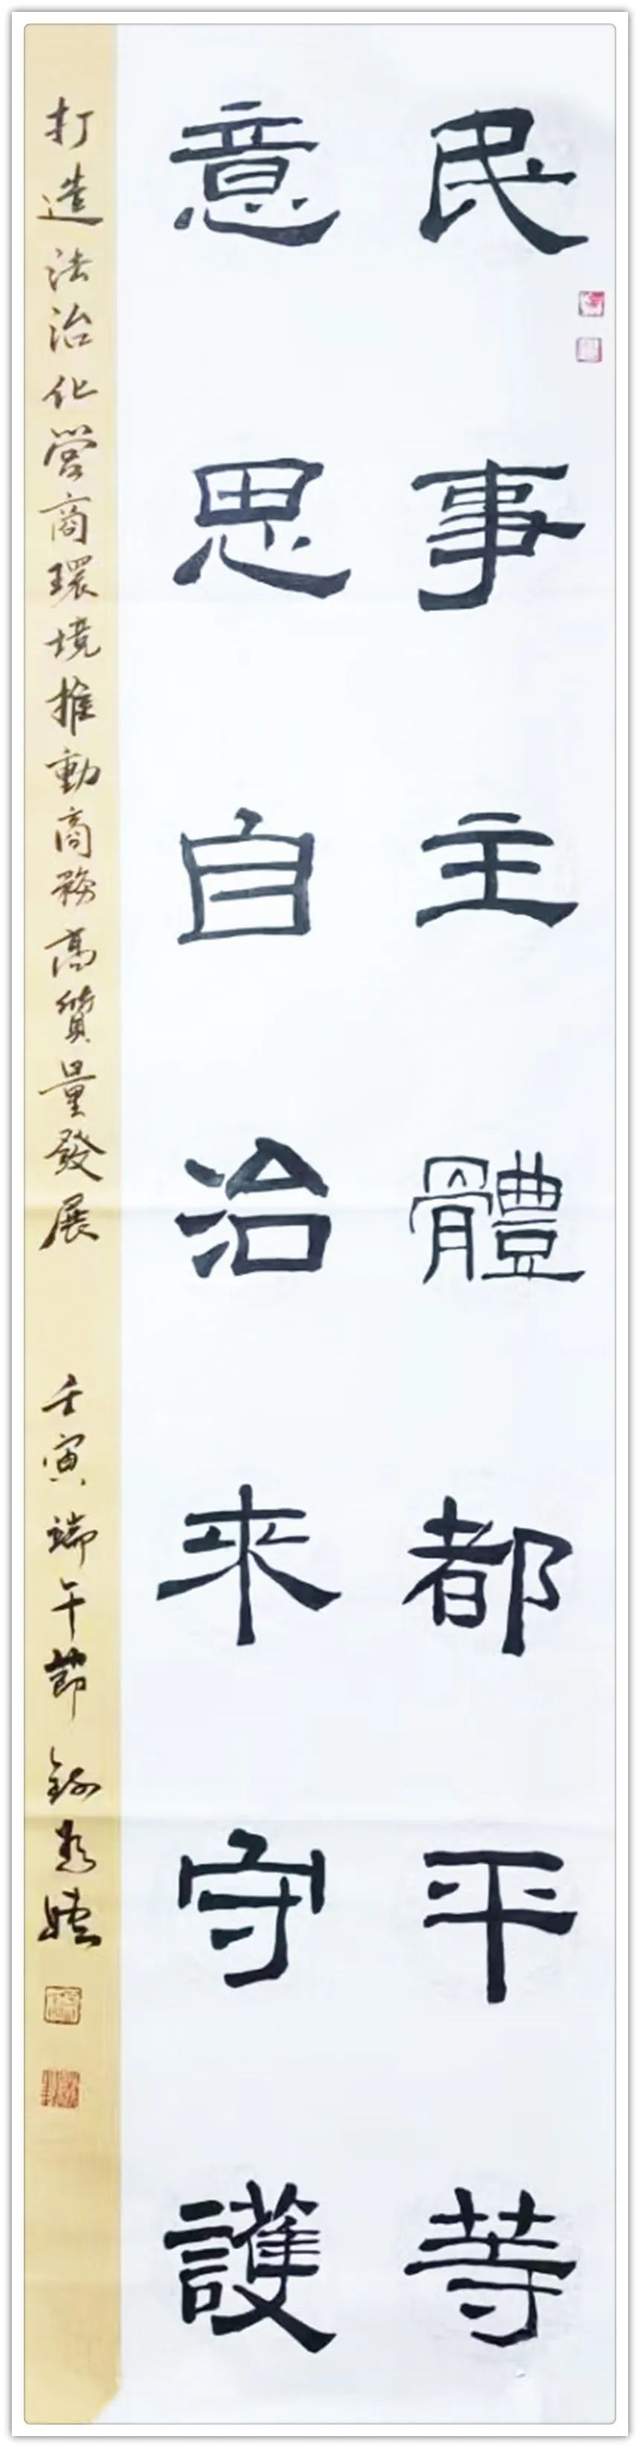 民事主體都平等
意思自治來守護
打造法治化營商環境推動商務高質量發展
壬寅端午節